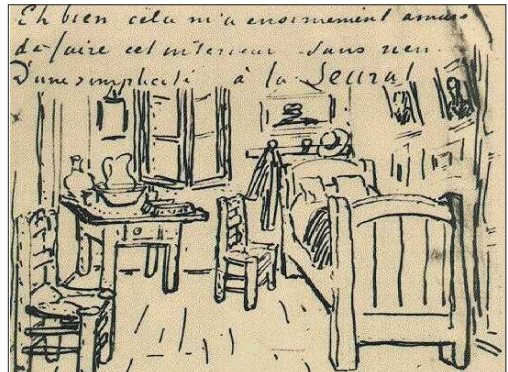 Eh bien cela m'a enormement amusé
de faire cet interieur sans rien.
D'une simplicité à la Seurat